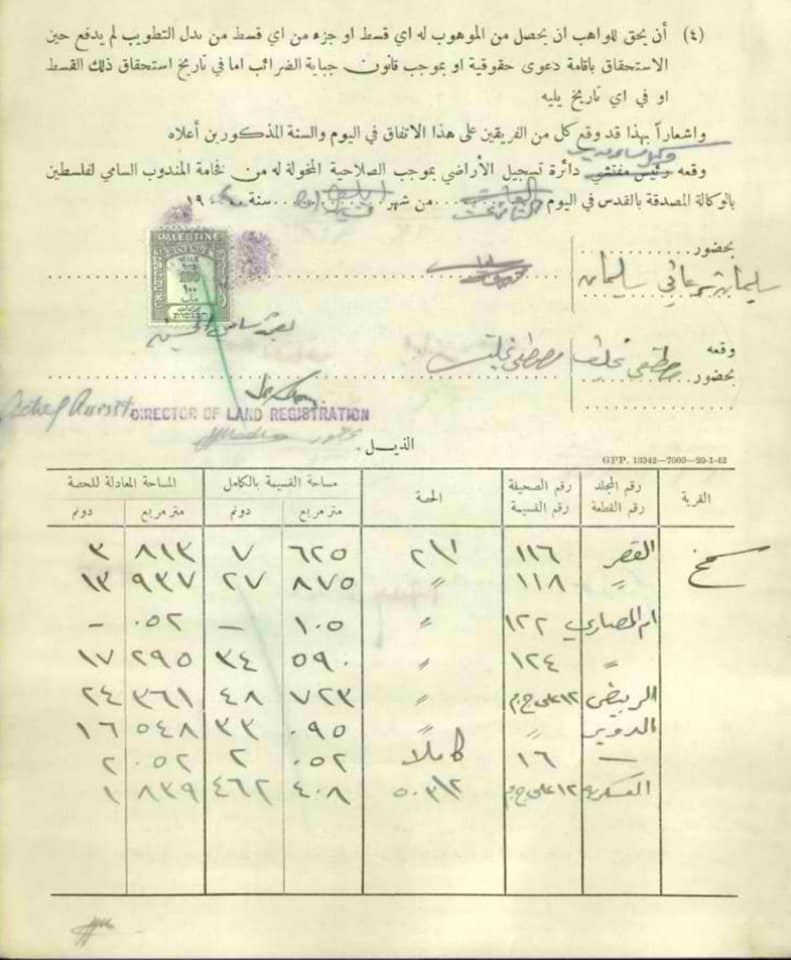 (٤) أن يحق للواهب ان يحصل من الموهوب له اي قسط او جزء من اي قسط من بدل التطويب لم يدفع حين
الاستحقاق باقامة دعوى حقوقية او بموجب قانون جباية الضرائب اما في تاريخ استحقاق ذلك القسط
او في اي تاريخ يليه
واشعاراً بهذا قد وقع كل من الفريقين على هذا الاتفاق في اليوم والسنة المذكورين أعلاه
وقعه رئيس مفتشي دائرة تسجيل الأراضي بموجب الصلاحية المخولة له من فخامة المندوب السامي لفلسطين
بالوكالة المصدقة بالقدس في اليوم من شهر سنة ١٩٤
بحضور
PALESTINE
١٠٠
مل
سليمان سليمان
وقعه
بحضور
مصطفى خليف مصطفى خليف
DIRECTOR OF LAND REGISTRATION
الذيل.
GPP. 13342—7000—20-1-42
القرية رقم المجلد رقم الصحيفة الحصة مساحة القسيمة بالكامل المساحة المعادلة للحصة
رقم القطعة رقم القسيمة متر مربع دونم متر مربع دونم
سمخ القصر ١١٦ ١/٢ ٦٢٥ ٧ ٨١٣ ٣
〃 ١١٨ 〃 ٨٧٥ ٢٧ ٩٣٧ ١٣
ام المصاري ١٢٢ 〃 ١٠٥ — ٠٥٢ —
〃 ١٢٤ 〃 ٥٩٠ ٣٤ ٢٩٥ ١٧
الربيضي ١٢ على ج م 〃 ٧٢٣ ٤٨ ٣٦١ ٢٤
الدوير 〃 〃 ٠٩٥ ٣٣ ٥٤٨ ١٦
— ١٦ كاملا ٠٥٢ ٢ ٠٥٢ ٢
العسكرية ١٢ على ج م ٢/٥٠٣ ٤٠٨ ٤٦٢ ٨٣٩ ١